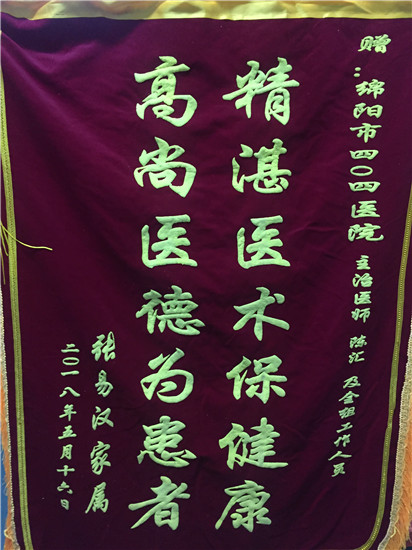 赠：绵阳市四〇四医院 主治医师 陈汇 及全组工作人员
精湛医术保健康
高尚医德为患者
张易汉家属
二〇一八年五月十六日